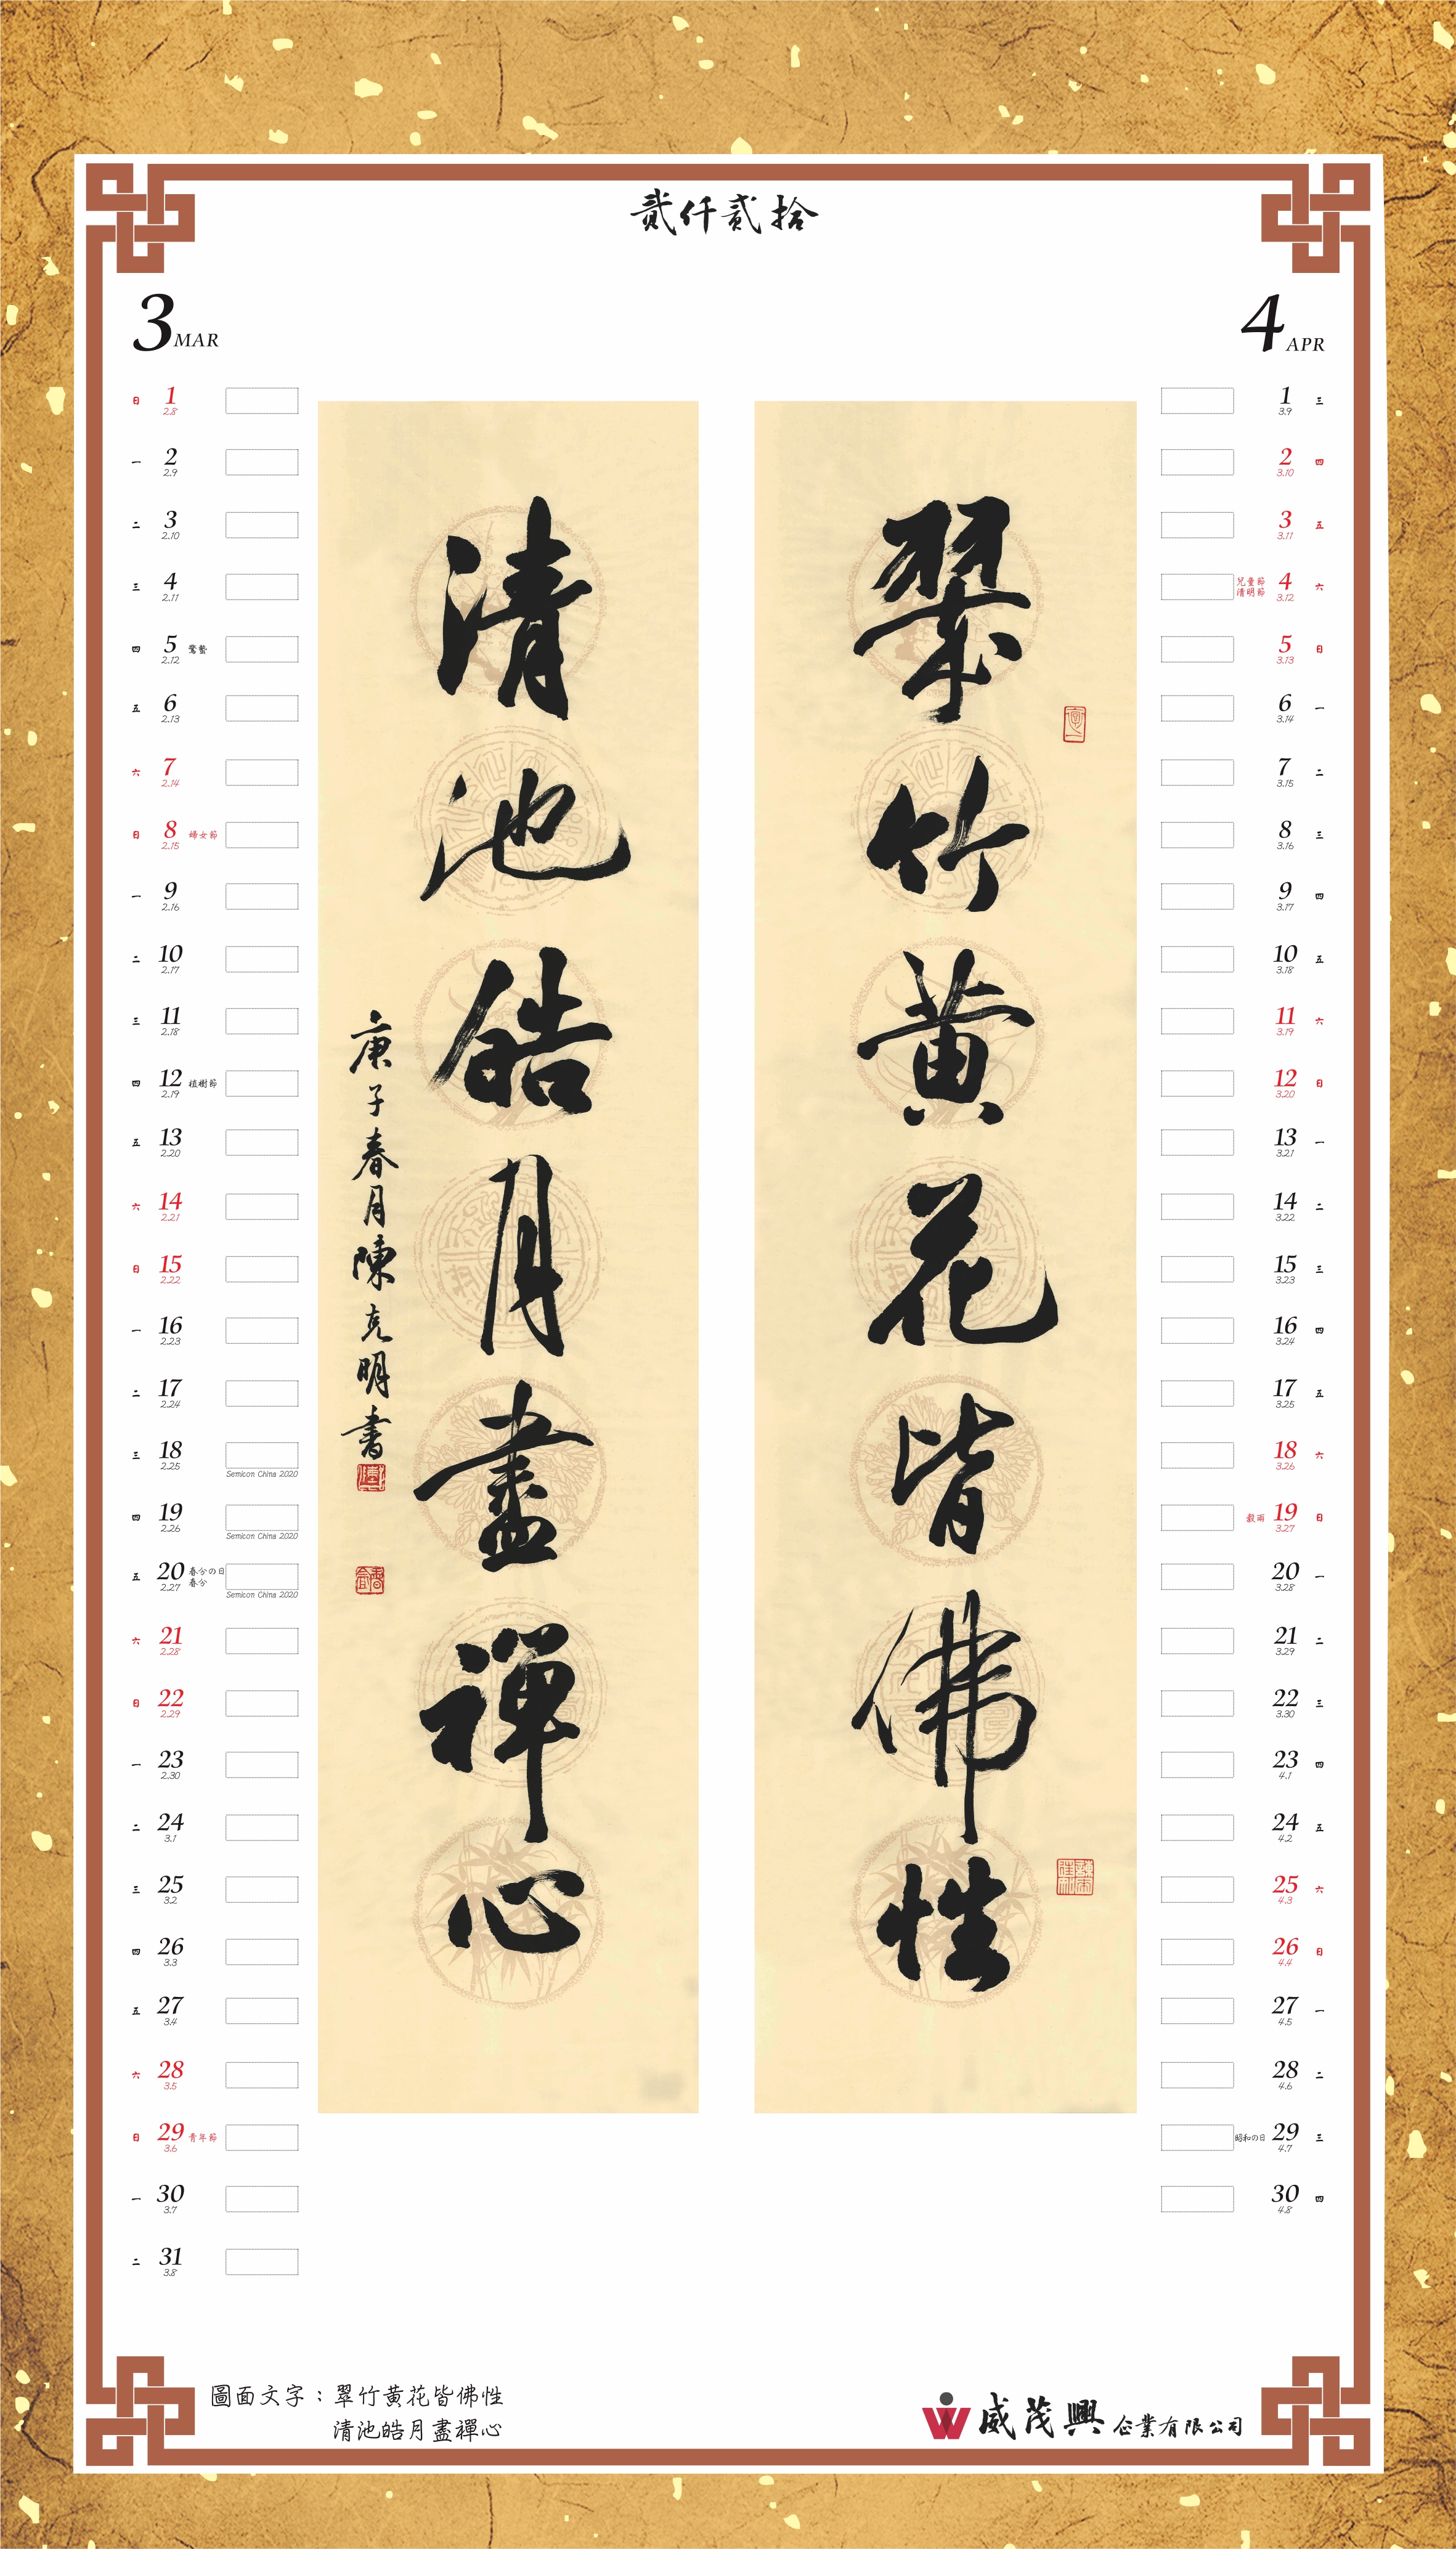 貳仟貳拾
3 MAR
日 1 2.8
一 2 2.9
二 3 2.10
三 4 2.11
四 5 2.12 驚蟄
五 6 2.13
六 7 2.14
日 8 2.15 婦女節
一 9 2.16
二 10 2.17
三 11 2.18
四 12 2.19 植樹節
五 13 2.20
六 14 2.21
日 15 2.22
一 16 2.23
二 17 2.24
三 18 2.25 Semicon China 2020
四 19 2.26 Semicon China 2020
五 20 2.27 春分の日 春分 Semicon China 2020
六 21 2.28
日 22 2.29
一 23 2.30
二 24 3.1
三 25 3.2
四 26 3.3
五 27 3.4
六 28 3.5
日 29 3.6 青年節
一 30 3.7
二 31 3.8
翠竹黃花皆佛性
清池皓月盡禪心
庚子春月陳克明書
4 APR
1 3.9 三
2 3.10 四
3 3.11 五
兒童節 清明節 4 3.12 六
5 3.13 日
6 3.14 一
7 3.15 二
8 3.16 三
9 3.17 四
10 3.18 五
11 3.19 六
12 3.20 日
13 3.21 一
14 3.22 二
15 3.23 三
16 3.24 四
17 3.25 五
18 3.26 六
穀雨 19 3.27 日
20 3.28 一
21 3.29 二
22 3.30 三
23 4.1 四
24 4.2 五
25 4.3 六
26 4.4 日
27 4.5 一
28 4.6 二
昭和の日 29 4.7 三
30 4.8 四
圖面文字：翠竹黃花皆佛性
清池皓月盡禪心
威茂興企業有限公司